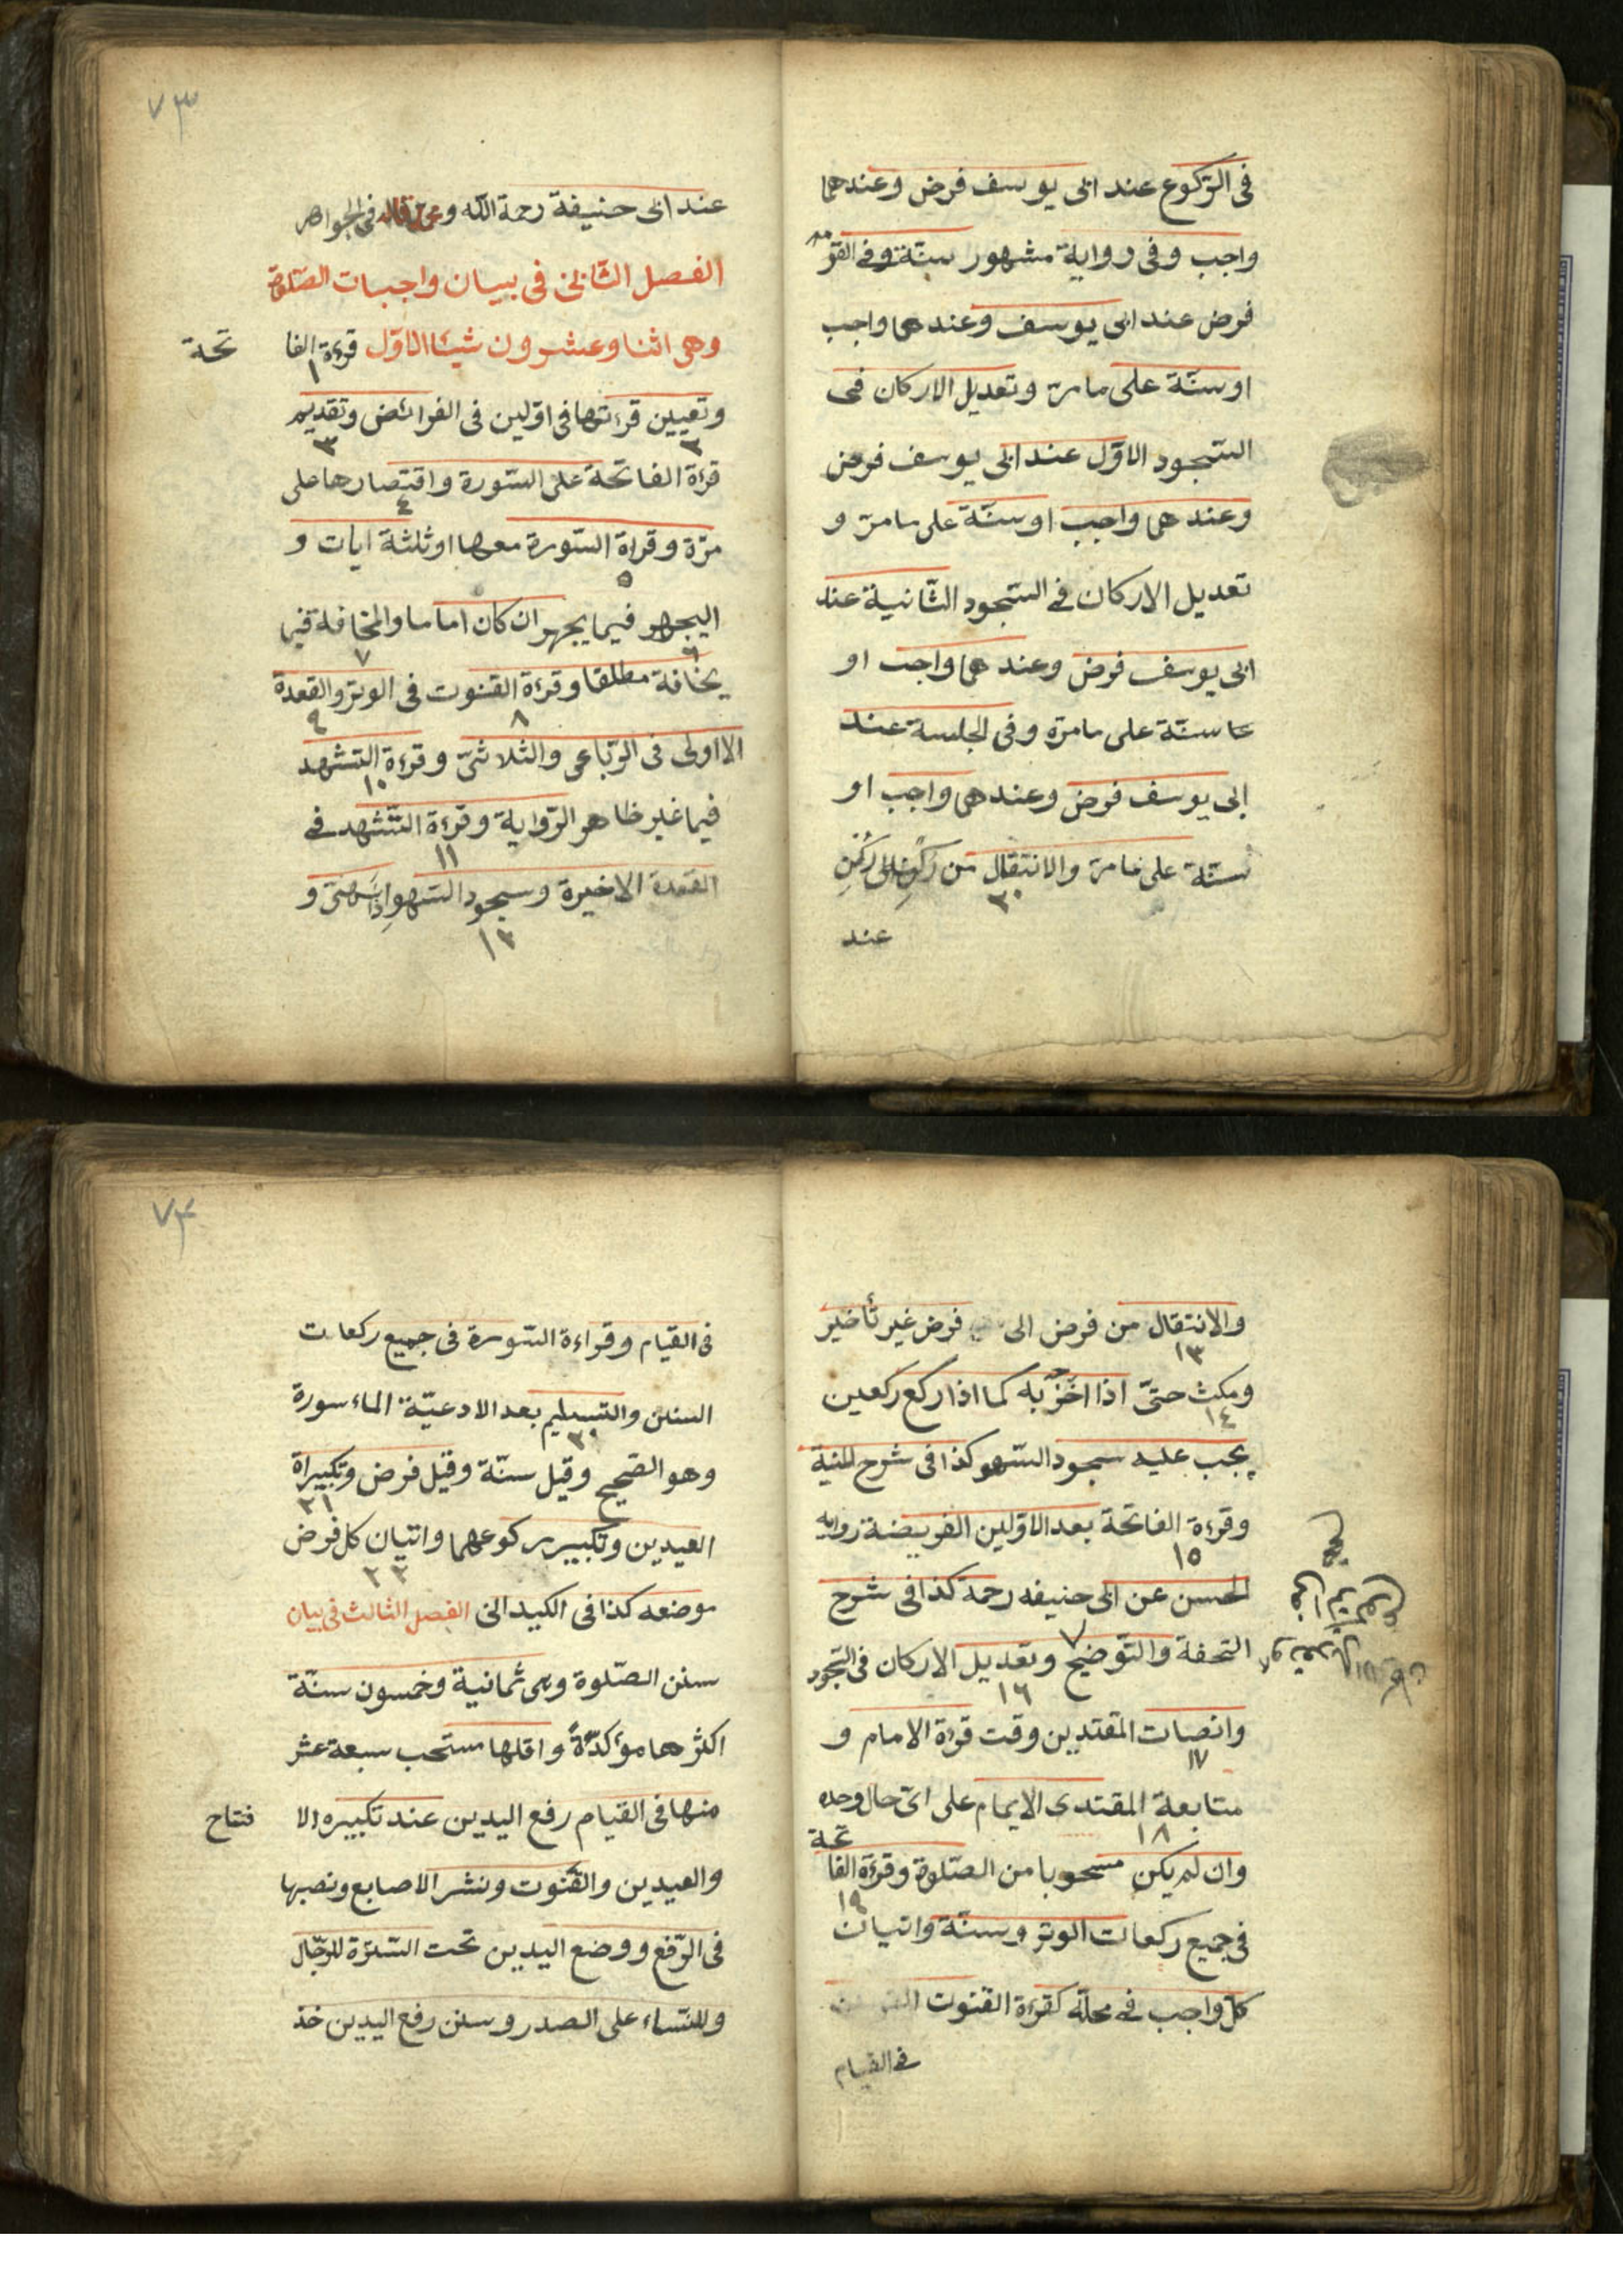 فى الركوع عند ابى يوسف فرض وعندهما
واجب وفى رواية مشهور سنة وفى القومه
فرض عند ابى يوسف وعندهما واجب
او سنّة على ما مرّ وتعديل الاركان فى
السّجود الاوّل عند ابى يوسف فرض
وعندهما واجب او سنّة على ما مرّ و
تعديل الاركان فى السّجود الثّانية عند
ابى يوسف فرض وعندهما واجب او
سنّة على ما مرّه وفى الجلسة عند
ابى يوسف فرض وعندهما واجب او
سنّة على ما مرّ والانتقال من ركن الى ركن
٢٠
عند
٧٣
عند ابى حنيفة رحمة اللّه فى الجواهر
الفصل الثّانى فى بيان واجبات الصّلوة
وهى اثنا وعشرون شيئا الاوّل قرءة الفا تحة
١
وتعيين قرءتها فى اوّلين فى الفرائض وتقديم
٢ ٣
قرءة الفاتحة على السّورة واقتصارها على
٤
مرّة وقراة السّورة معها او ثلثة ايات و
٥
اليجهر فيما يجهر ان كان اماما والمخافة فيما
٦ ٧
يخافة مطلقا وقرءة القنوت فى الوتر والقعدة
٨ ٩
الااولى فى الرّباعى والثلاثىّ وقرءة التشهد
١٠
فيما غير ظاهر الرّواية وقرءة التّشهد فى
١١
القعدة الاخيرة وسجود السّهو اذا سهىّ و
١٢
والانتقال من فرض الى فرض غير تأخير
١٣
ومكث حتىّ اذا اخّر به كما اذا ركع ركعين
١٤
يجب عليه سجود السّهو كذا فى شرح المنية
وقرءة الفاتحة بعد الاوّلين الفريضة رواية
١٥
الحسن عن ابى حنيفه رحمة كذا فى شرح
التحفة والتّوضيح وتعديل الاركان فى السّجود
١٦
وانصات المقتدين وقت قرءة الامام و
١٧
متابعة المقتدى الايمام على اىّ حال وحده
١٨
وان لم يكن مسحوبا من الصّلوة وقرءة الفا تحة
١٩
فى جميع ركعات الوتر وسنّة واتيان
كلّ واجب فى محلّه كقرءة القنوت
فى القيام
٧٤
فى القيام وقراءة السّورة فى جميع ركعات
السنن والتسليم بعد الادعيّة الماءسورة
٢٠
وهو الصّحيح وقيل سنّة وقيل فرض وتكبيراة
٢١
العيدين وتكبير ركوعهما واتيان كل فرض
٢٢
موضعه كذا فى الكيدانى الفصل الثالث فى بيان
سنن الصّلوة وهى ثمانية وخمسون سنّة
اكثرها مؤكدّةً واقلها مستحب سبعة عشر
منها فى القيام رفع اليدين عند تكبيره الا فتتاح
والعيدين والقنوت ونشر الاصابع ونصبها
فى الرّفع ووضع اليدين تحت السّترّة للرّجّال
وللنّساء على الصدر وسنن رفع اليدين خذ